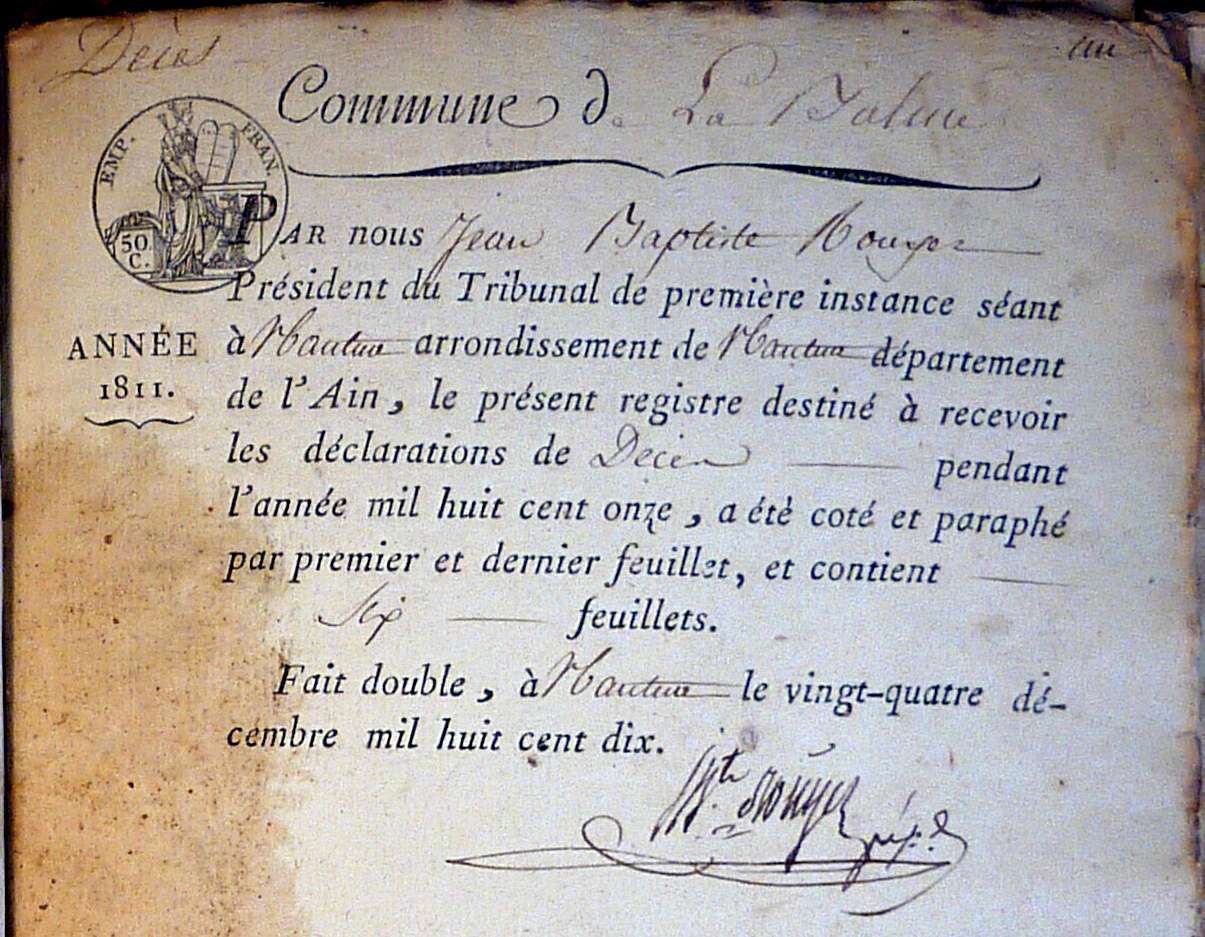 Décès
an
Commune de La Balme
EMP. FRAN.
50
C.
PAR nous Jean Baptiste Rouyer
Président du Tribunal de première instance séant
ANNÉE
1811.
à Nantua arrondissement de Nantua département
de l'Ain, le présent registre destiné à recevoir
les déclarations de Décès pendant
l'année mil huit cent onze, a été coté et paraphé
par premier et dernier feuillet, et contient
six feuillets.
Fait double, à Nantua le vingt-quatre dé-
cembre mil huit cent dix.
Bte Rouyer